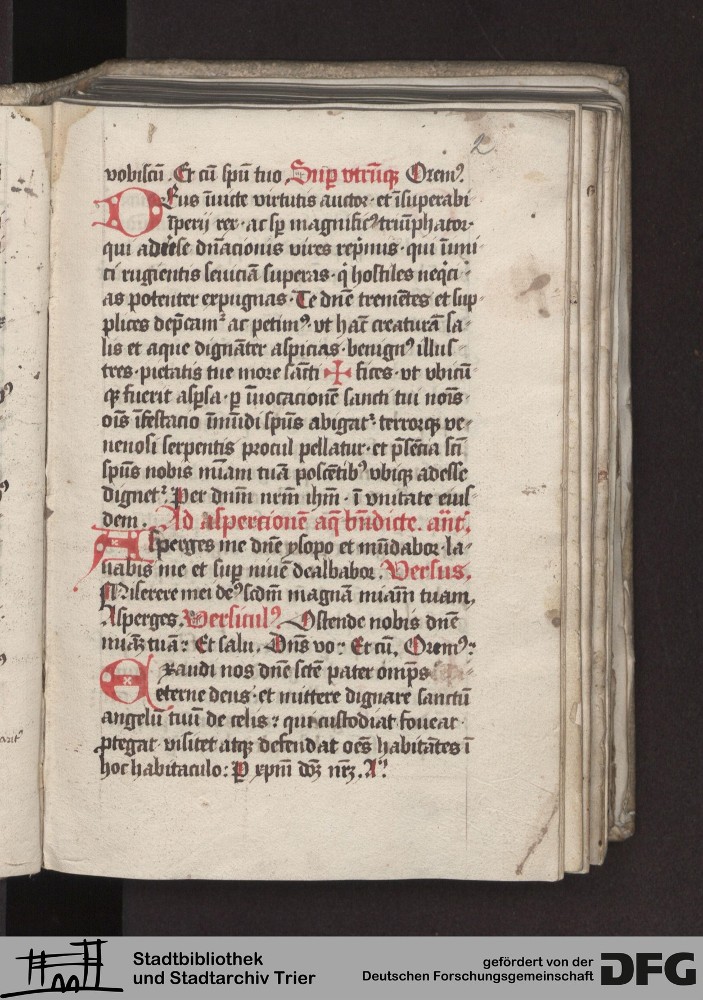 2
vobiscū. Et cū spū tuo Suꝑ vtrūqꝫ Oremꝰ.
DEus īuicte virtutis auctor et īsuperabi
īperij rex ac sꝑ magnificꝰ triūphator
qui aduerse dn̄acionis vires rep̄mis qui inimi
ci rugientis seuiciā superas q̇ hostiles neq̇ci
as potenter expugnas Te dn̄e tremētes et sup
plices dep̄camᷣ ac petimꝰ vt hāc creaturā sa
lis et aque dignāter aspicias benignꝰ illus
tres pietatis tue more sācti ✠ fices vt vbicū
qꝫ fuerit aspsa ꝑ īuocacionē sancti tui noīs
oīs īfestacio īmūdi spūs abigatᷣ terrorqꝫ ve
nenosi serpentis procul pellatur et p̄sēcia scī
spūs nobis mīam tuā poscētibꝰ vbiqꝫ adesse
dignetᷣ Per dnm̄ nrm̄ ihm̄ ī vnitate eius
dem. Ad aspercionē aq̄ bn̄dicte. an̄t.
Asperges me dn̄e ysopo et mūdabor la
uabis me et suꝑ niuē dealbabor. Versus.
Miserere mei deꝰ scdm̄ magnā mīam tuam,
Asperges. Versiculꝰ Ostende nobis dn̄e
mīaꝫ tuā: Et salu. Dn̄s vo: Et cū, Oremꝰ:
Exaudi nos dn̄e sc̄te pater omp̄s
eterne deus et mittere dignare sanctū
angelū tuū de celis: qui custodiat foueat
ꝓtegat visitet atqꝫ defendat oēs habitātes ī
hoc habitaculo: ꝑ xpm̄ dn̄ꝫ nrꝫ. A.
Stadtbibliothek
und Stadtarchiv Trier
gefördert von der
Deutschen Forschungsgemeinschaft
DFG